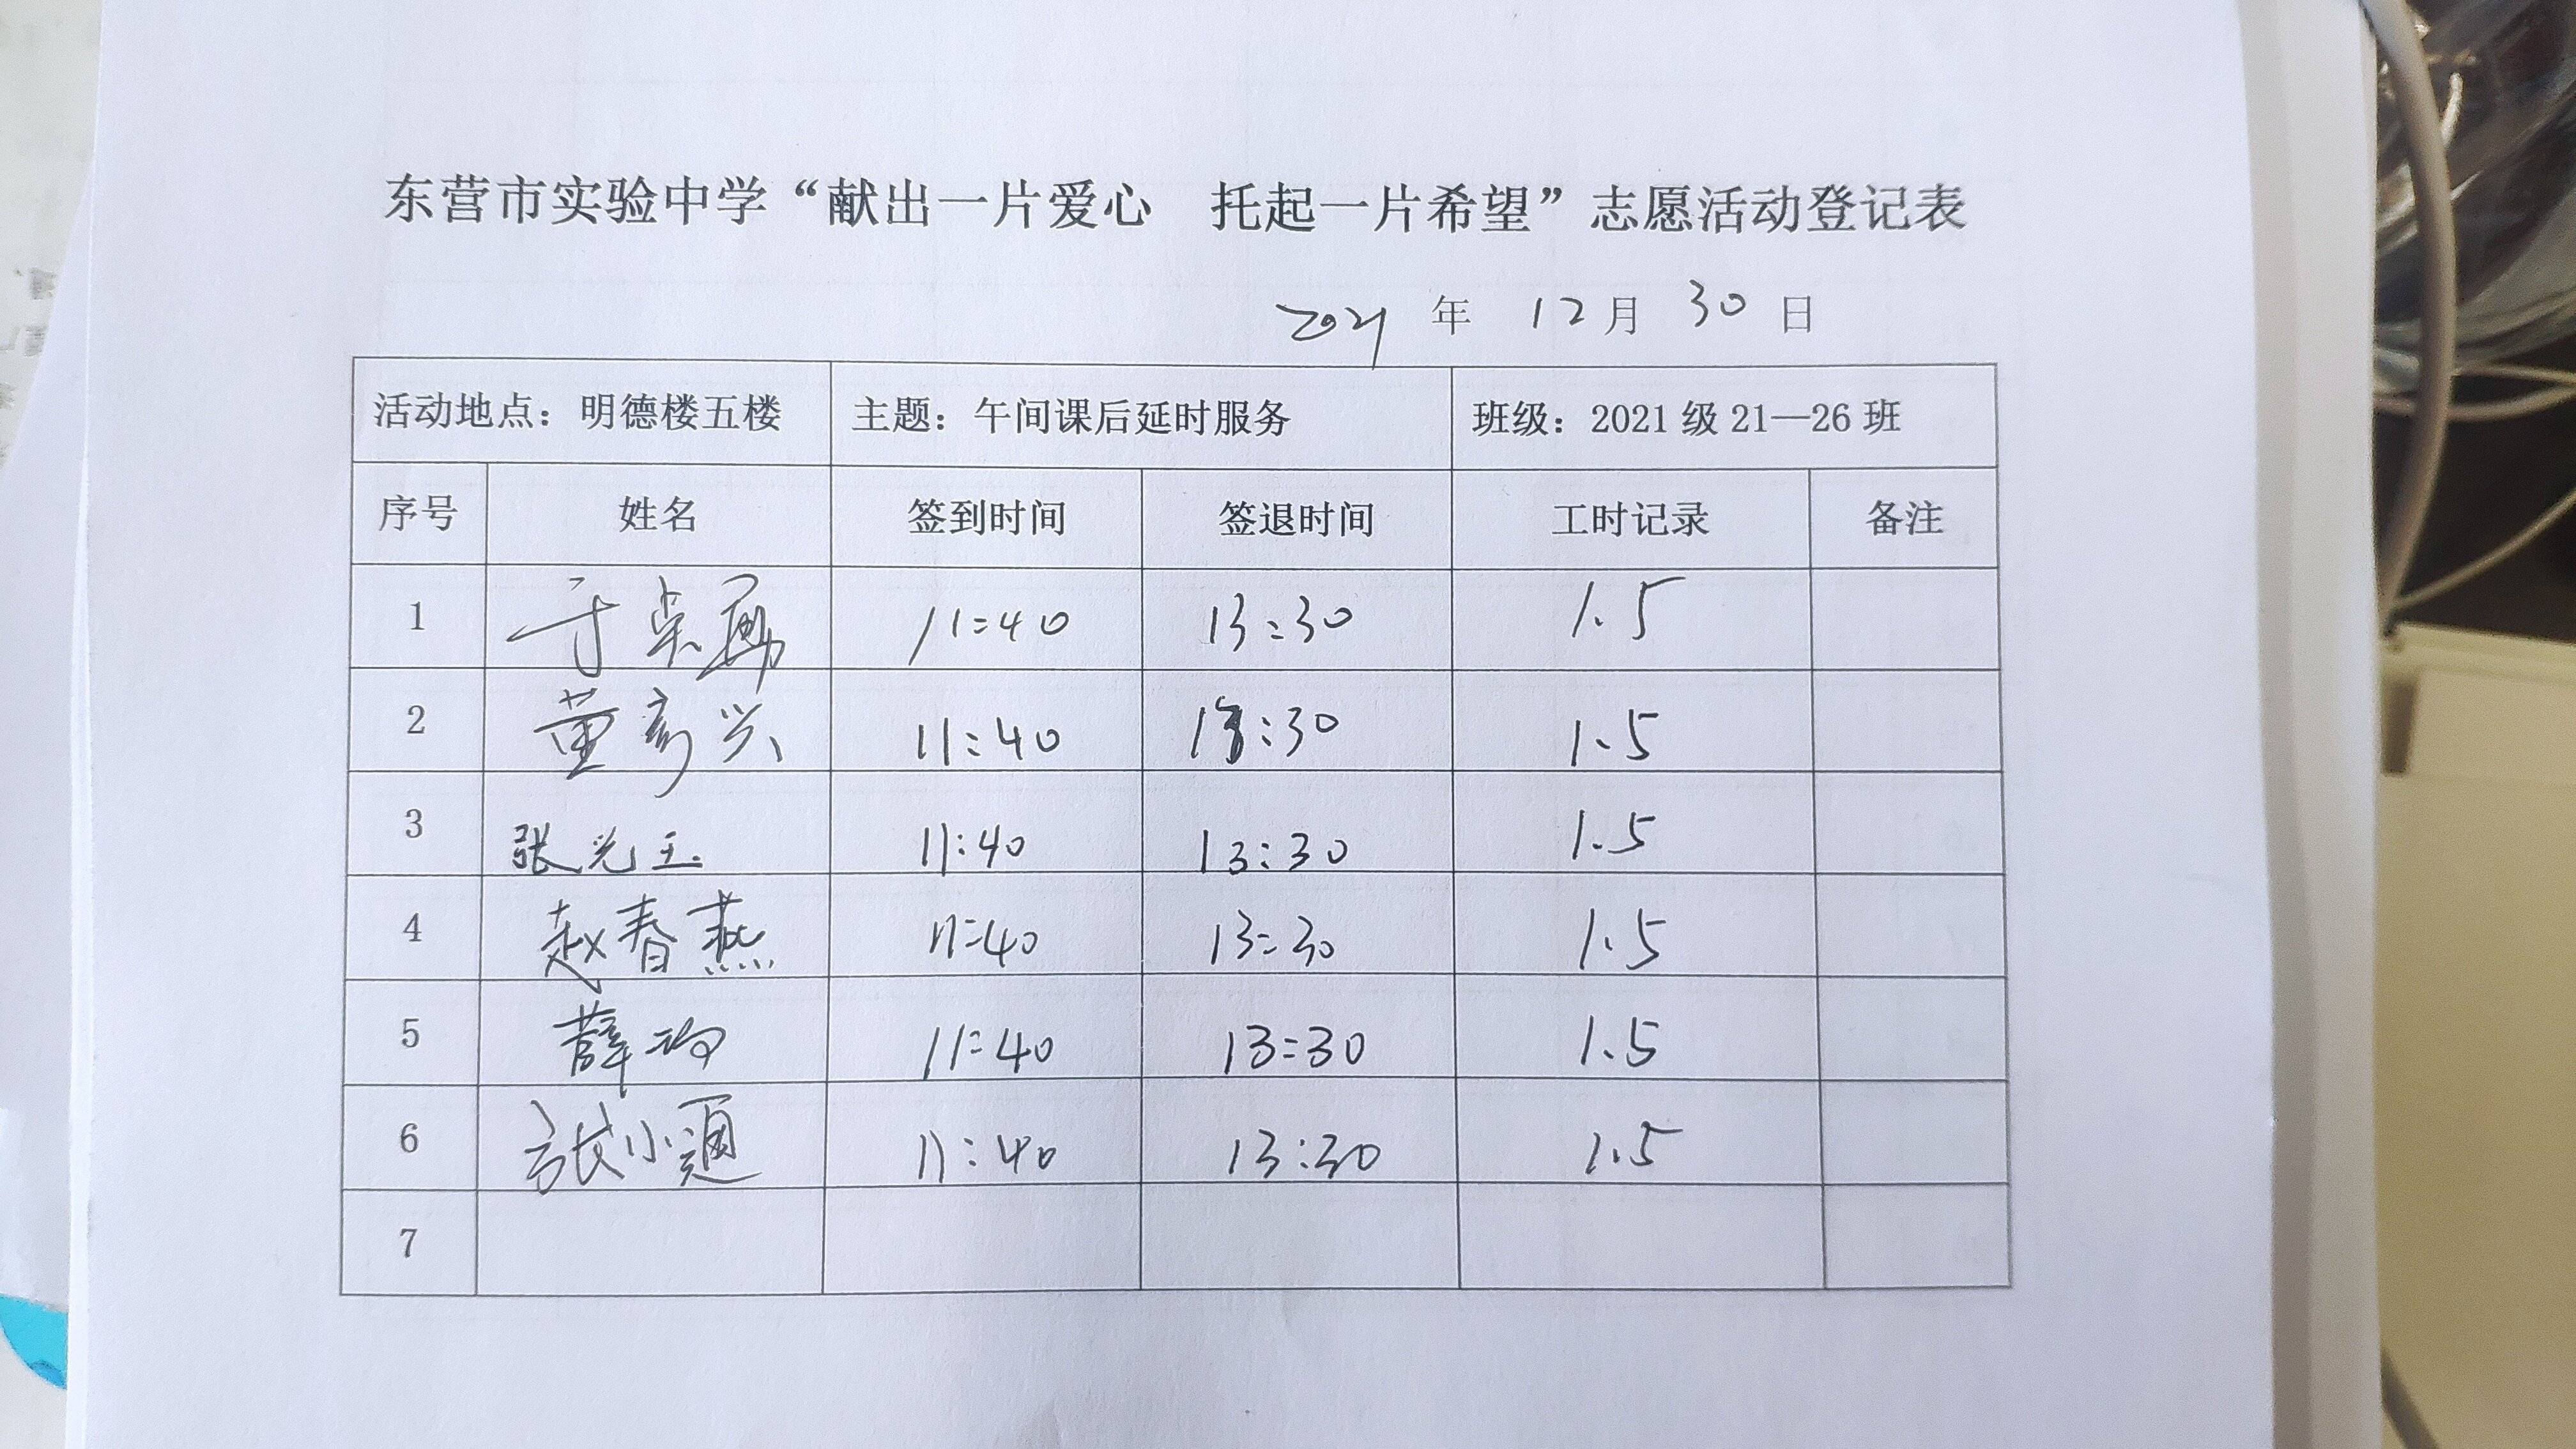 东营市实验中学“献出一片爱心 托起一片希望”志愿活动登记表
2021 年 12 月 30 日
活动地点：明德楼五楼 主题：午间课后延时服务 班级：2021 级 21—26 班
序号 姓名 签到时间 签退时间 工时记录 备注
1 于 11:40 13:30 1.5
2 董彦兴 11:40 13:30 1.5
3 张光玉 11:40 13:30 1.5
4 赵春燕 11:40 13:30 1.5
5 薛 11:40 13:30 1.5
6 张小通 11:40 13:30 1.5
7